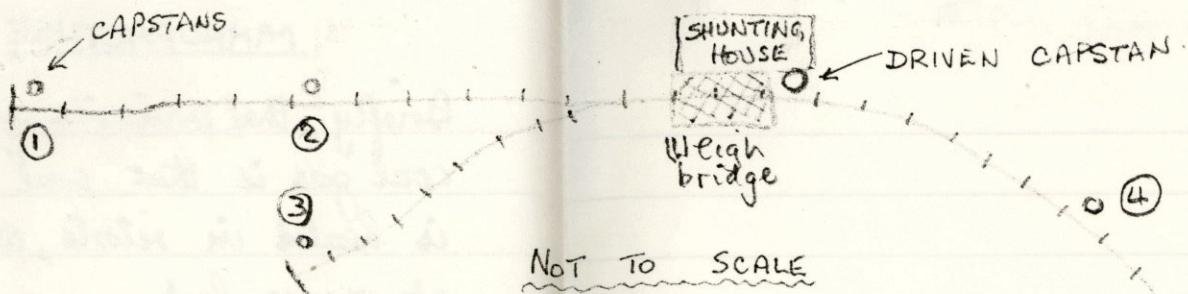 CAPSTANS
SHUNTING
HOUSE
DRIVEN CAPSTAN
1
2
Weigh
bridge
3
4
NOT TO SCALE